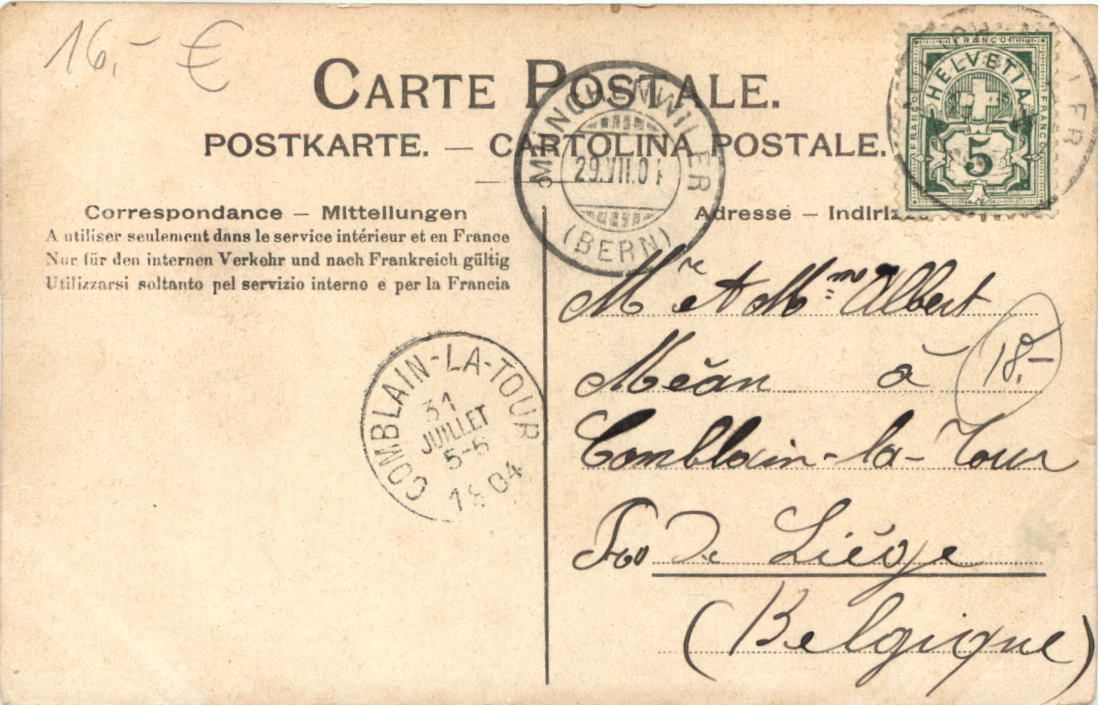 16,- €
CARTE POSTALE.
POSTKARTE. — CARTOLINA POSTALE.
MÜNCHENWILER
29.VII.04
(BERN)
FRANCO
HELVETIA
FRANCO
FRANCO
5
Correspondance — Mitteilungen
A utiliser seulement dans le service intérieur et en France
Nur für den internen Verkehr und nach Frankreich gültig
Utilizzarsi soltanto pel servizio interno e per la Francia
Adresse — Indirizzo
COMBLAIN-LA-TOUR
31
JUILLET
5-6
1904
Mre et Mme Albert
Méan à
18,-
Comblain-la-Tour
De Liége
(Belgique)